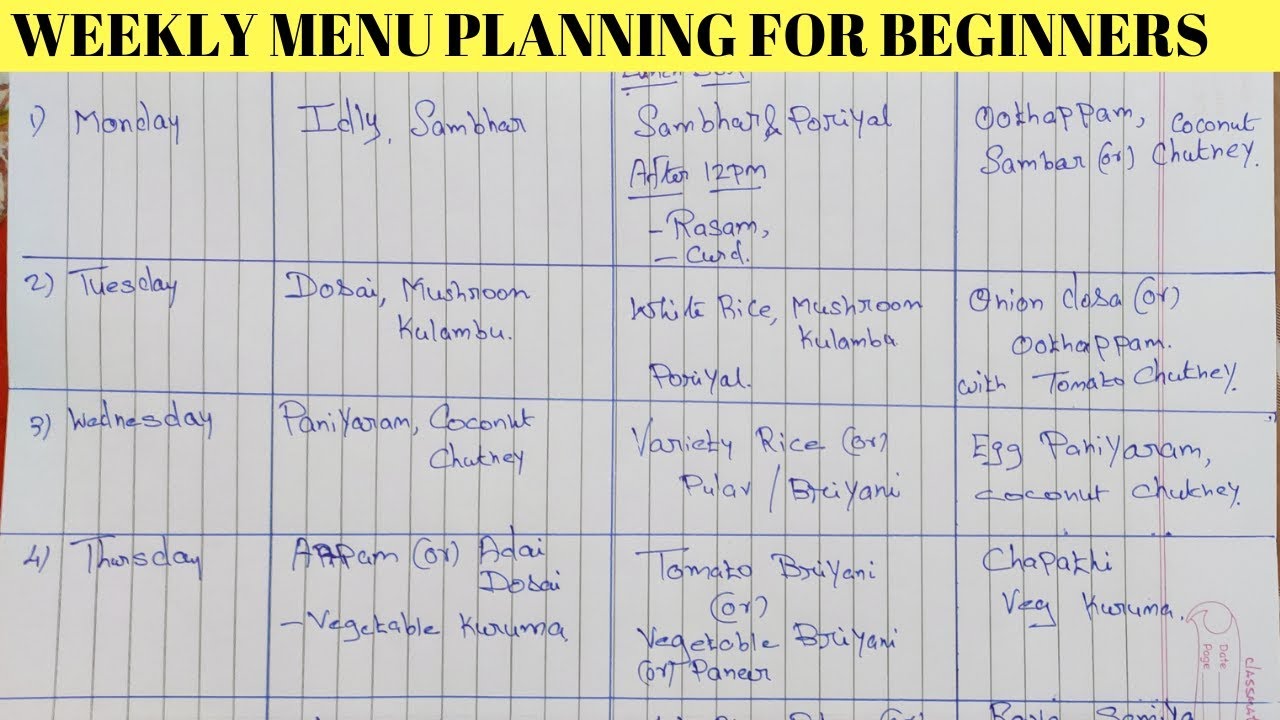 WEEKLY MENU PLANNING FOR BEGINNERS
Lunch Box
1) Monday
Idly, Sambhar
Sambhar & Poriyal
After 12pm
- Rasam,
- Curd.
Ookhappam, Coconut
Sambar (or) Chutney.
2) Tuesday
Dosai, Mushroon
Kulambu.
White Rice, Mushroom
Kulamba
Poriyal.
Onion dosa (or)
Ookhappam.
with Tomato Chutney.
3) Wednesday
Paniyaram, Coconut
Chutney
Variety Rice (or)
Pulav / Briyani
Egg Paniyaram,
coconut chutney.
4) Thursday
Appam (or) Adai
Dosai
- Vegetable Kuruma
Tomato Briyani
(or)
Vegetable Briyani
(or) Paneer
Chapathi
Veg Kuruma.
Date
Page